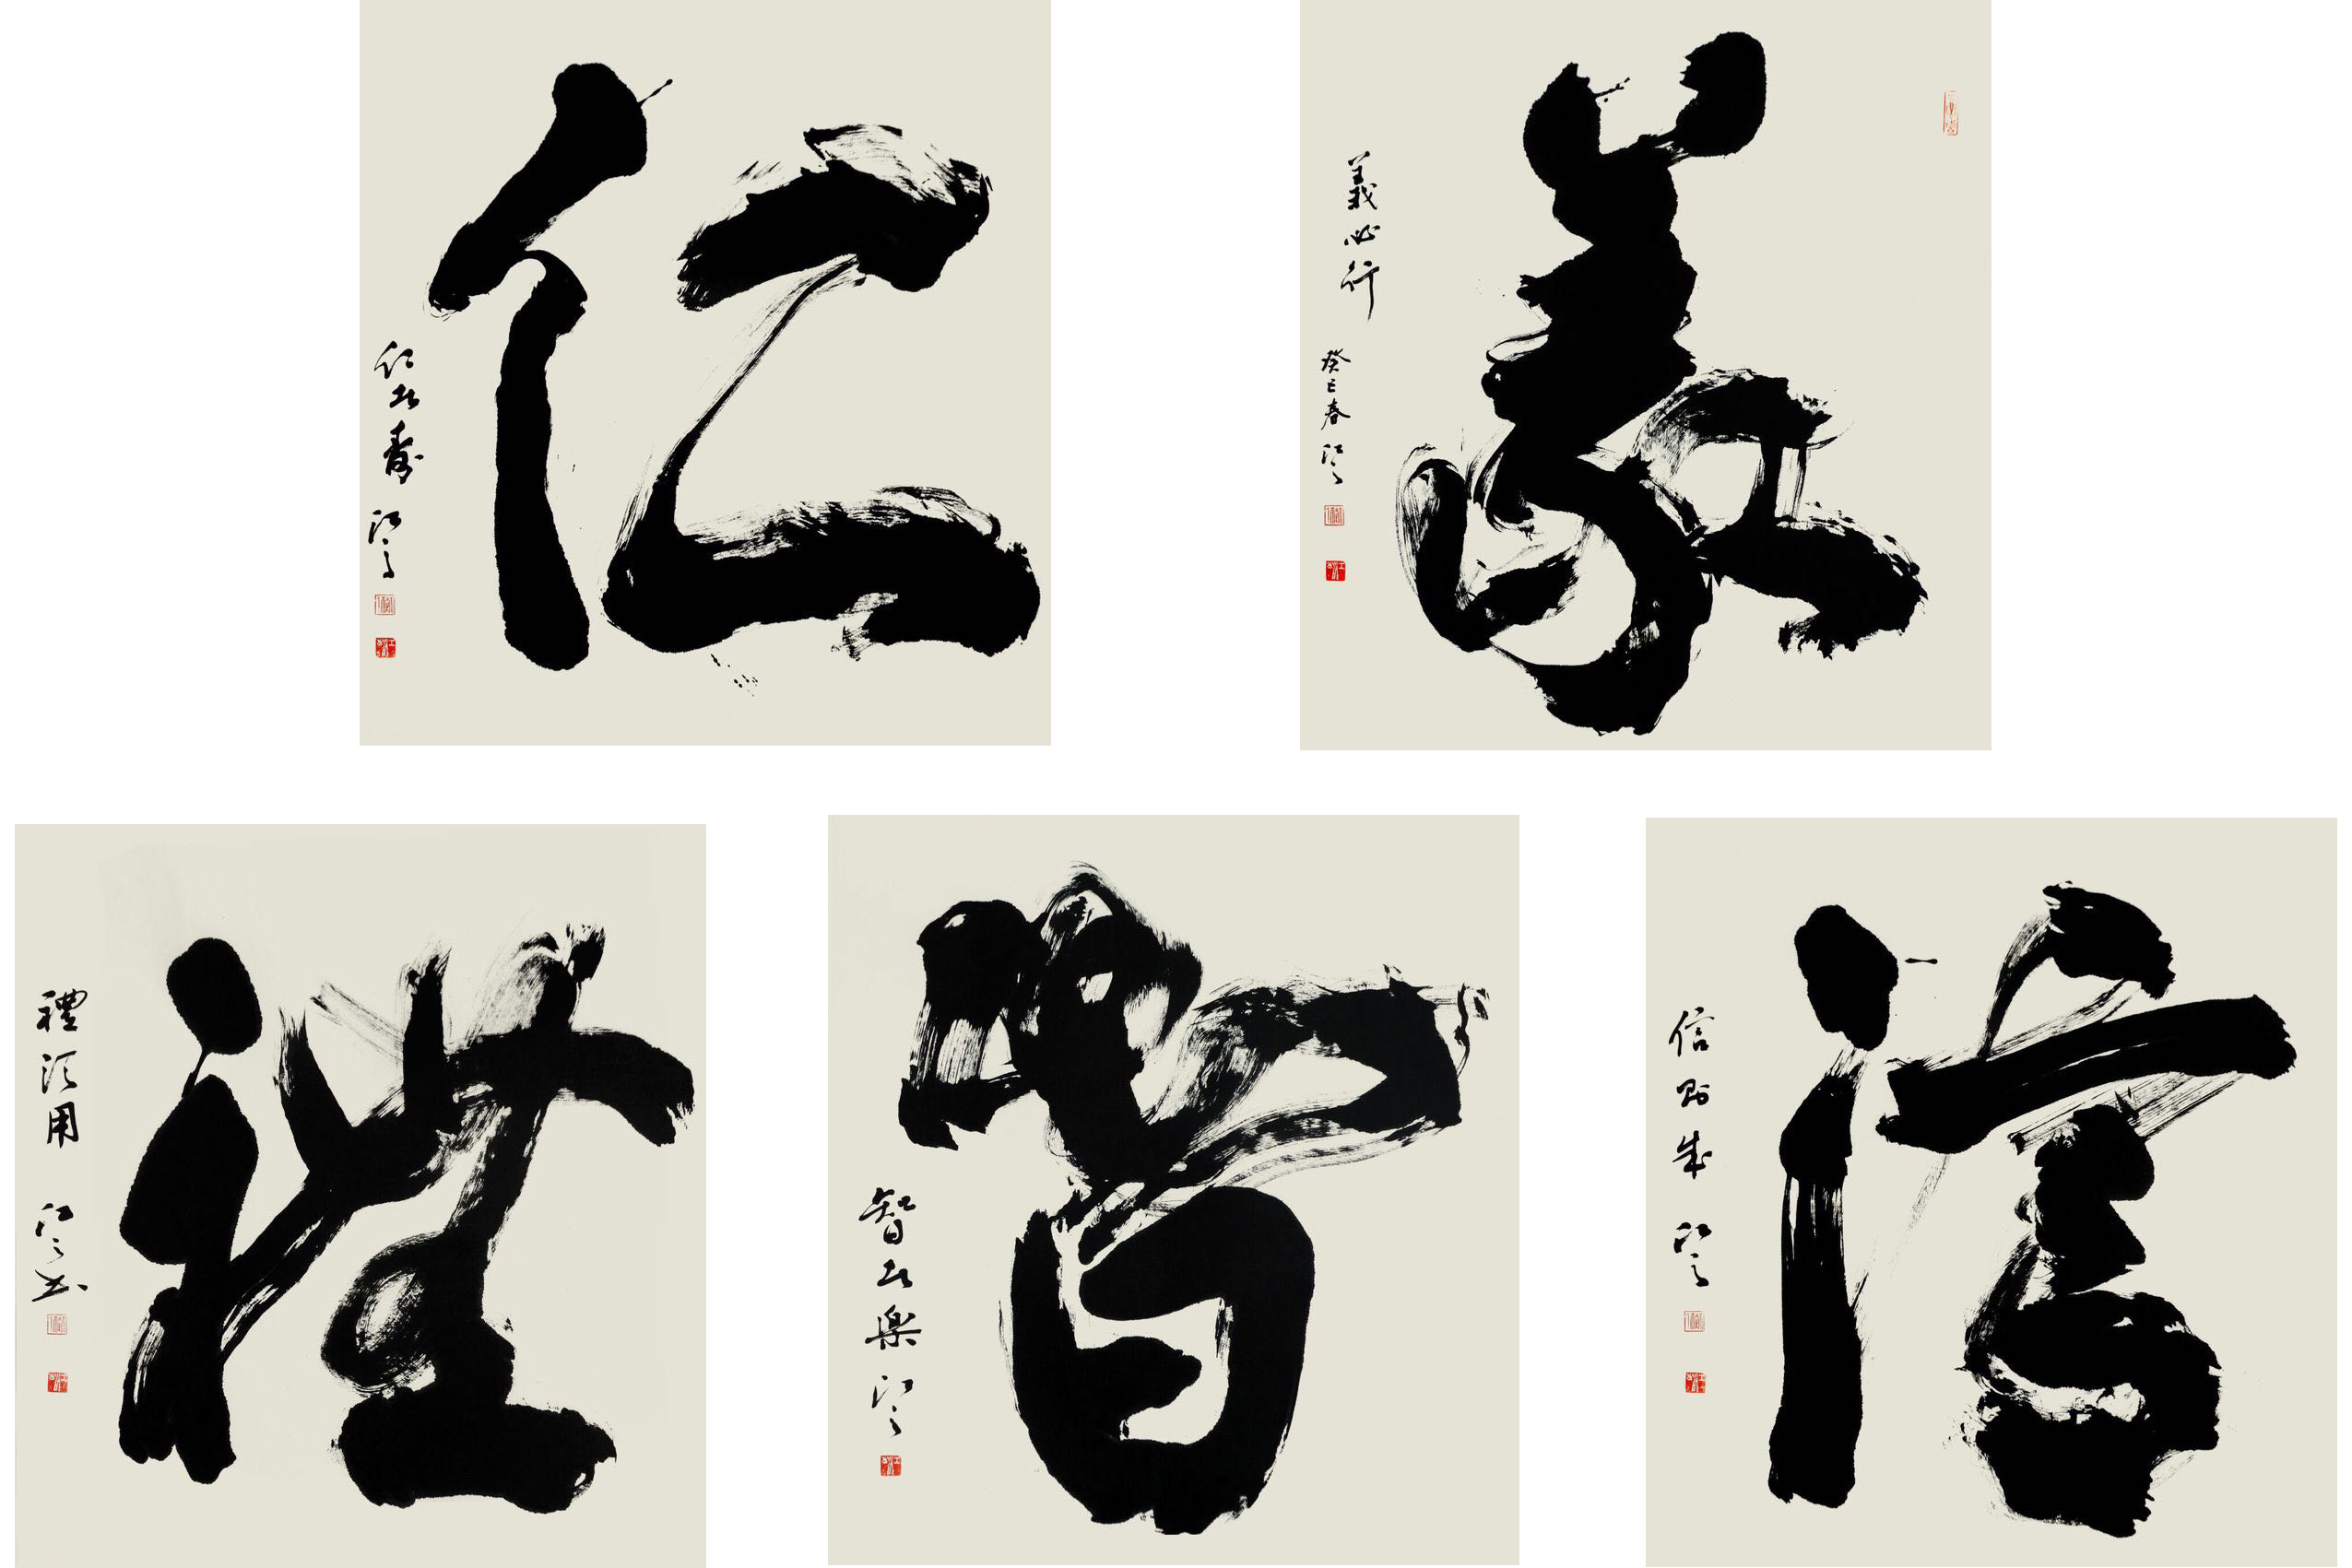 仁
仁者壽
義
義必行
癸巳春
禮
禮須用
智
智者樂
信
信則成